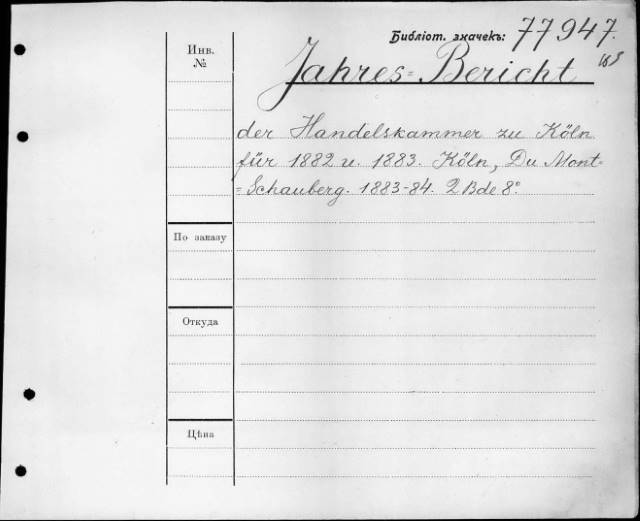 Библіот. значекъ: 77947.
Инв.
№
Jahres=Bericht
der Handelskammer zu Köln
für 1882 u. 1883. Köln, Du Mont-
=Schauberg. 1883-84. 2 Bde 8°.
По заказу
Откуда
Цѣна